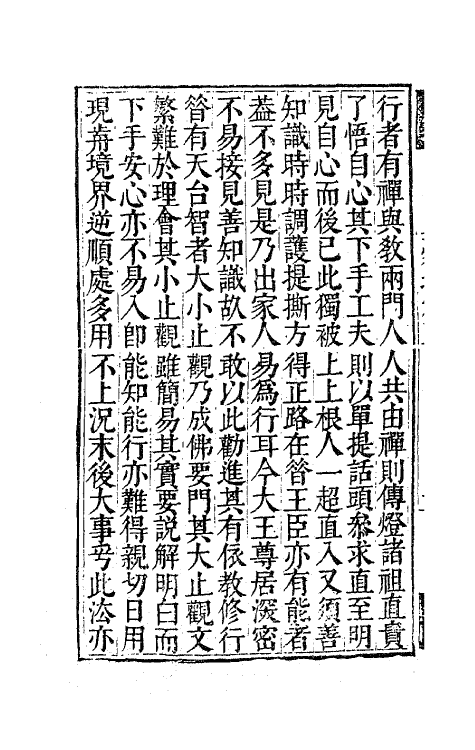 行者有禪與教兩門人人共由禪則傳燈諸祖直貴
了悟自心其下手工夫則以單提話頭叅求直至明
見自心而後已此獨被上上根人一超直入又須善
知識時時調護提撕方得正路在昝王臣亦有能者
葢不多見是乃出家人易爲行耳今大王尊居深密
不易接見善知識故不敢以此勸進其有依教修行
昝有天台智者大小止觀乃成佛要門其大止觀文
繁難於理會其小止觀雖簡易其實要說解明白而
下手安心亦不易入卽能知能行亦難得親切日用
現歬境界逆順處多用不上況末後大事乎此法亦